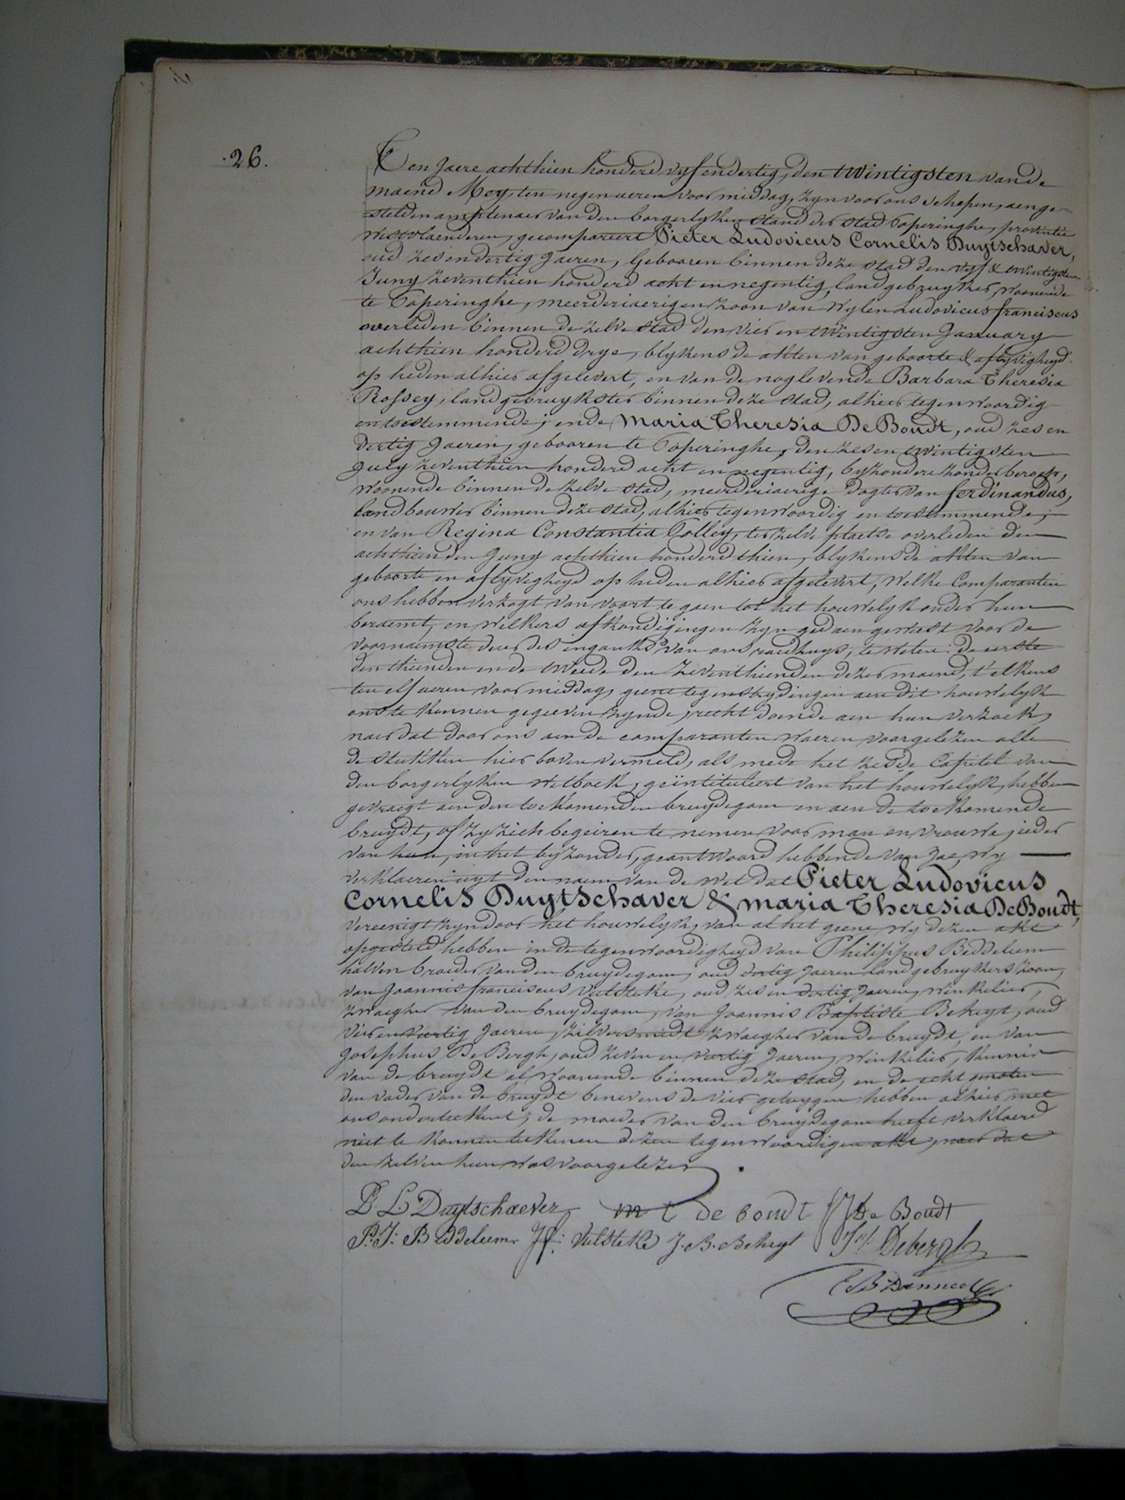 26.
Ten Jaere achthien honderd vyfendertig, den twintigsten van de
maend Mey, ten negen aeren voormiddag, zyn voor ons schepen, aenge-
stelden amptenaer van den borgerlyken stand der stad Poperinghe, provintie
Westvlaenderen, gecompareert Pieter Ludovicus Cornelis Duytschaver,
oud zes en dertig Jaeren, gebooren binnen deze stad den vyf & twintigsten
Juny zeventhien honderd acht en negentig, landgebruyker, woonende
te Poperinghe, meerderiaerigen zoon van wylen Ludovicus franciscus
overleden binnen de zelve stad den vier en twintigsten January
achthien honderd drye, blykens de akten van geboorte & aflyvigheyd
op heden alhier afgelevert, en van de nog levende Barbara Theresia
Rossey, landgebruykster binnen deze stad, alhier tegenwoordig
en toestemmende; ende Maria Theresia De Boudt, oud zes en
dertig Jaeren, gebooren te Poperinghe, den zes en twintigsten
July zeventhien honderd acht en negentig, byzondere zonder beroep,
woonende binnen de zelve stad, meerderiaerige dogter van ferdinandus,
landbouwer binnen deze stad, alhier tegenwoordig en toestemmende,
en van Regina Constantia Golley, ter zelve plaetse overleden den
achthienden Juny achthien honderd thien, blykens de akten van
geboorte en aflyvigheyd op heden alhier afgelevert, welke Comparanten
ons hebben verzogt van voort te gaen tot het houwelyk onder hun
beraemt, en welkers afkondigingen zyn gedaen geweest voor de
voornaemste deur des ingangs van ons raedhuys, te weten: de eerste
den thienden en de tweede den zeventhienden dezer maend, t'elkens
ten elf aeren voormiddag, geene tegenstrydingen aen dit houwelyk
ons te kennen gegeven zynde, recht doende aen hun verzoek,
naer dat door ons aen de comparanten waeren voorgelezen alle
de stukken hier boven vermeld, als mede het zesde Capitel van
den borgerlyken wetboek, geïntituleert van het houwelyk, hebben
gevraegt aen den toekomenden bruydegom en aen de toekomende
bruydt, of zy zich begeiren te nemen voor man en vrouwe, ieder
van hun, in het byzonder, geantwoord hebbende van Jae, wy
verklaeren uyt den naem van de wet dat Pieter Ludovicus
Cornelis Duytschaver & Maria Theresia De Boudt,
vereenigt zyn door het houwelyk, van al het geene wy dezen akt
opgesteld hebben in de tegenwoordigheyd van Philippus Beddeleem
halven broeder van den bruydegom, oud dertig Jaeren landgebruykers zoon,
van Joannis franciscus Vulsteke, oud zes en dertig Jaeren, winkelier,
zwaeger van den bruydegom, van Joannis Baptiste Beheyt, oud
vier en veertig Jaeren, zilversmidt zwaegher van de bruydt, en van
Josephus De Bergh, oud zeven en veertig Jaeren, winkelier, kennis
van de bruydt al woonende binnen deze stad, en de echtgenoten
den vader van de bruydt benevens de vier getuygen hebben alhier met
ons onderteekent; de moeder van den bruydegom heeft verklaerd
niet te konnen teekenen dezen tegenwoordigen akt, naer dat
den zelven hun was voorgelezen.
P L Duytschaever m t de boudt F J De Boudt
P: J: Beddeleem J f: Vulsteke J. B. Beheyt Js Debergh